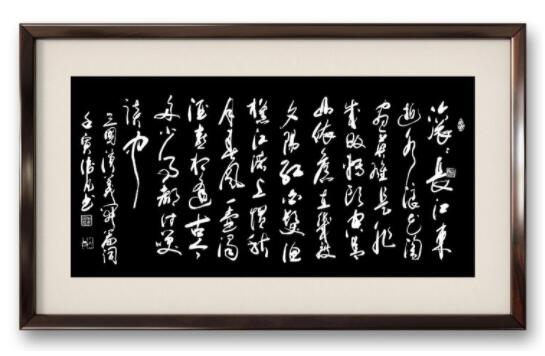 滚滚長江東
逝水浪花淘
尽英雄是非
成败转头空青
山依旧在几度
夕陽红白髮渔
樵江渚上惯看秋
月春风一壶浊
酒喜相逢古今
多少事都付笑
谈中
三國演義开篇词
壬寅
书